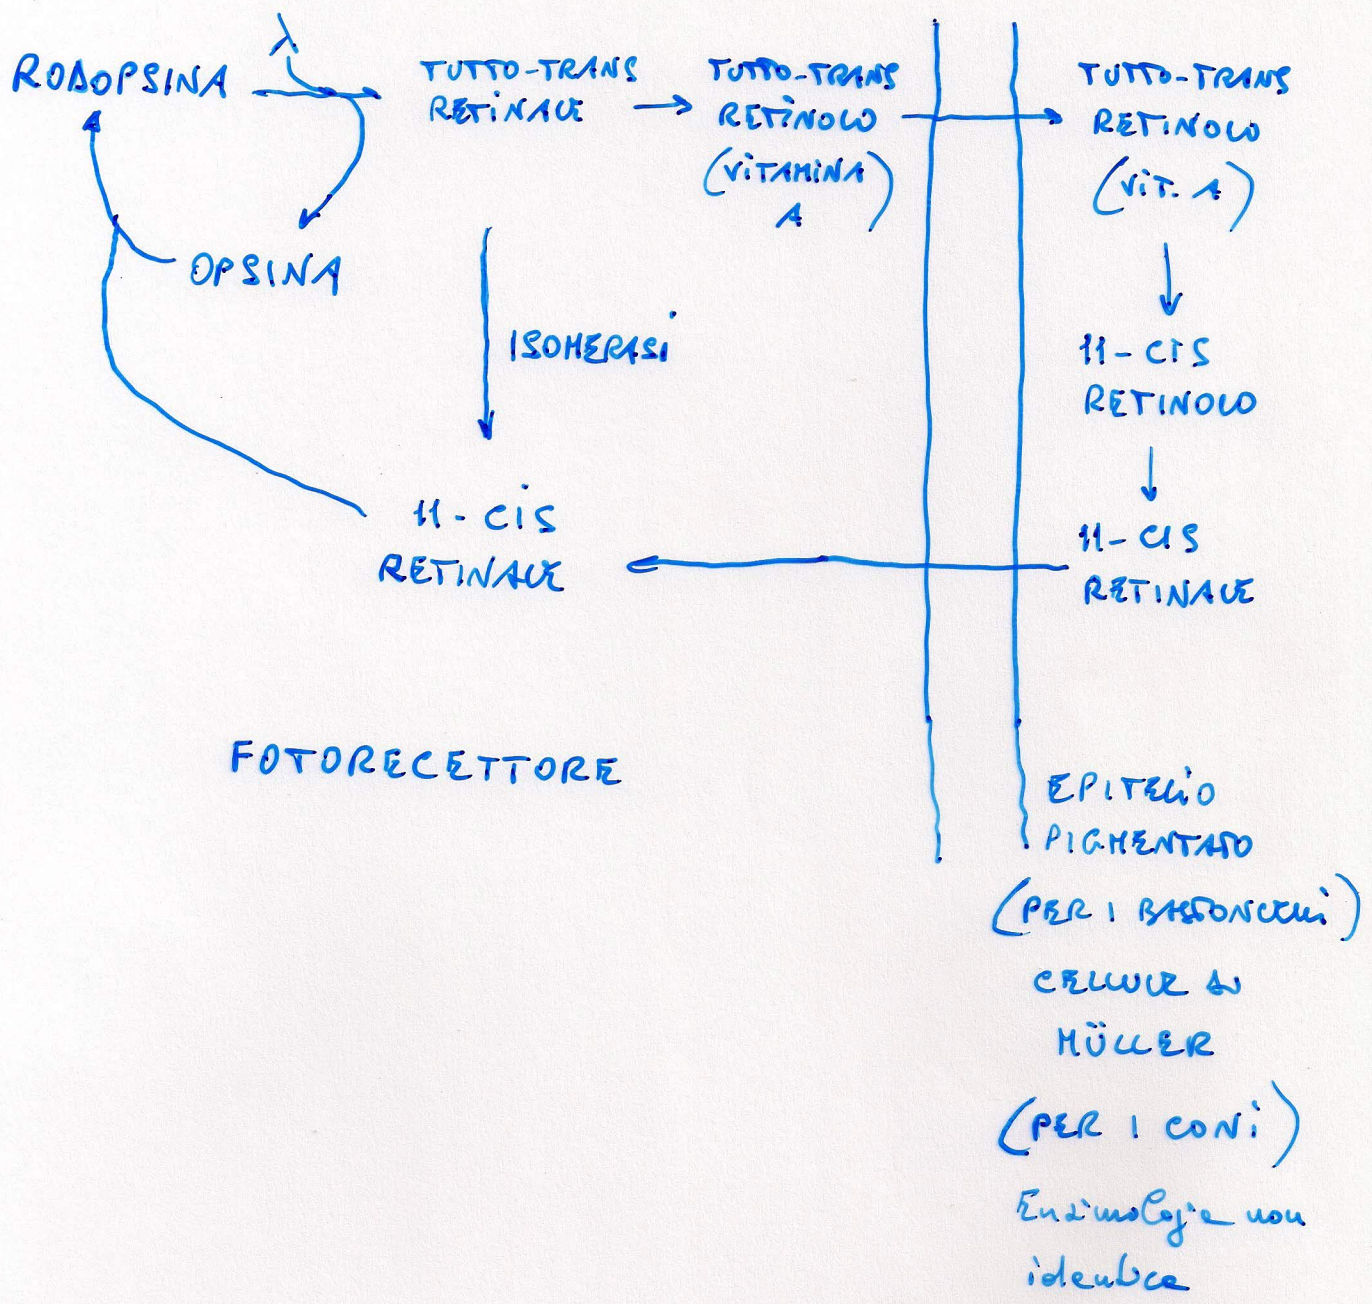 λ
RODOPSINA
TUTTO-TRANS
RETINALE
TUTTO-TRANS
RETINOLO
(VITAMINA
A)
TUTTO-TRANS
RETINOLO
(VIT. A)
OPSINA
ISOMERASI
11-CIS
RETINOLO
11-CIS
RETINALE
11-CIS
RETINALE
FOTORECETTORE
EPITELIO
PIGMENTATO
(PER I BASTONCELLI)
CELLULE DI
MÜLLER
(PER I CONI)
Enzimologia non
identica